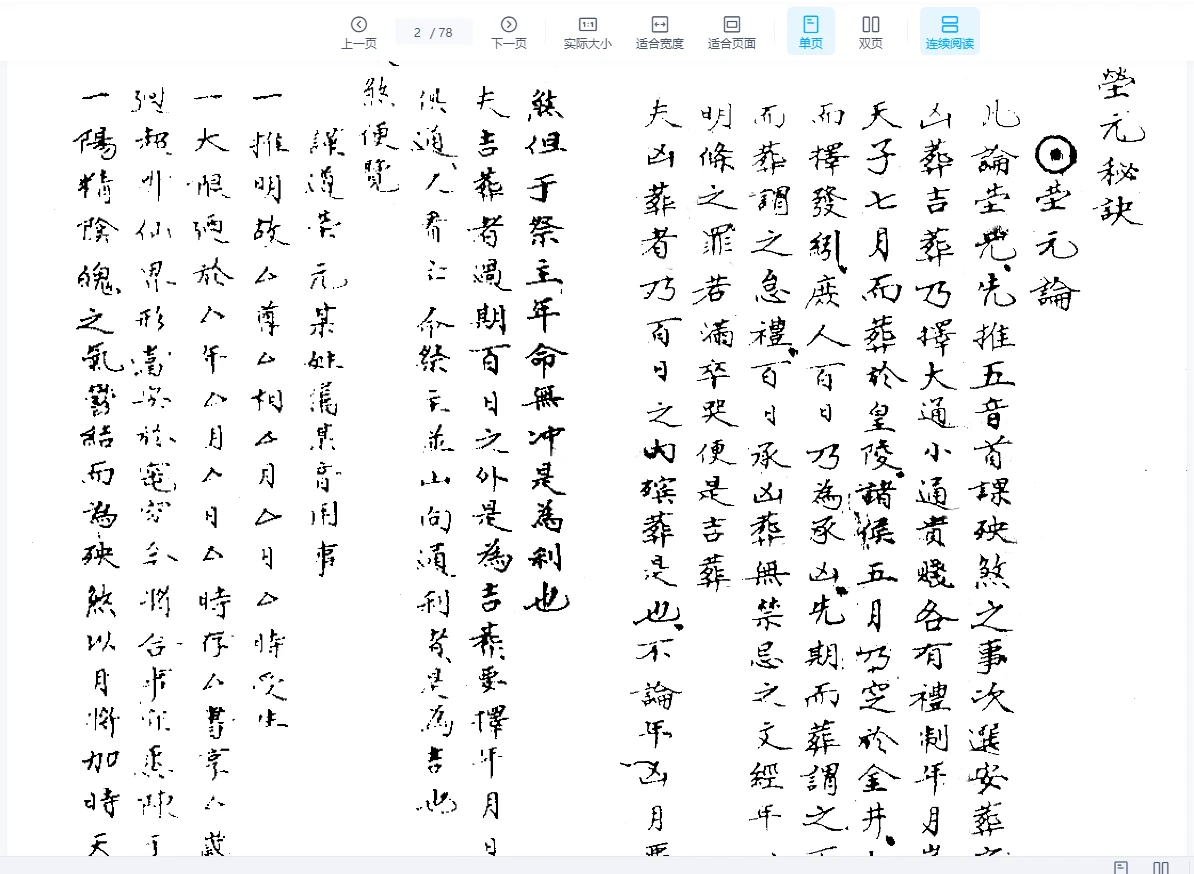 上一页
2 / 78
下一页
1:1
实际大小
适合宽度
适合页面
单页
双页
连续阅读
塋元秘訣
塋元論
凡論塋兇先推五音首課殃煞之事次選安葬之
凶葬吉葬乃擇大通小通貴賤各有禮制年月
天子七月而葬於皇陵諸侯五月乃穵於金井
而擇發紖庶人百日乃為承凶先期而葬謂之
而葬謂之怠禮百日承凶葬無禁忌之文經年
明條之罪若滿卒哭便是吉葬
夫凶葬者乃百日之內殯葬是也不論年凶月
煞但于祭主年命無冲是為利也
夫吉葬者過期百日之外是為吉葬要擇年月日
俱通人看亡命祭主並山向須利者是為吉也
煞便覽
謹遵 元某 某 用事
一推明故厶尊厶相厶月厶日厶時受生
一大限 於厶年厶月厶日厶時存厶壽享厶歲
形 於
一陽精陰魄之氣鬱結而為殃煞以月將加時天